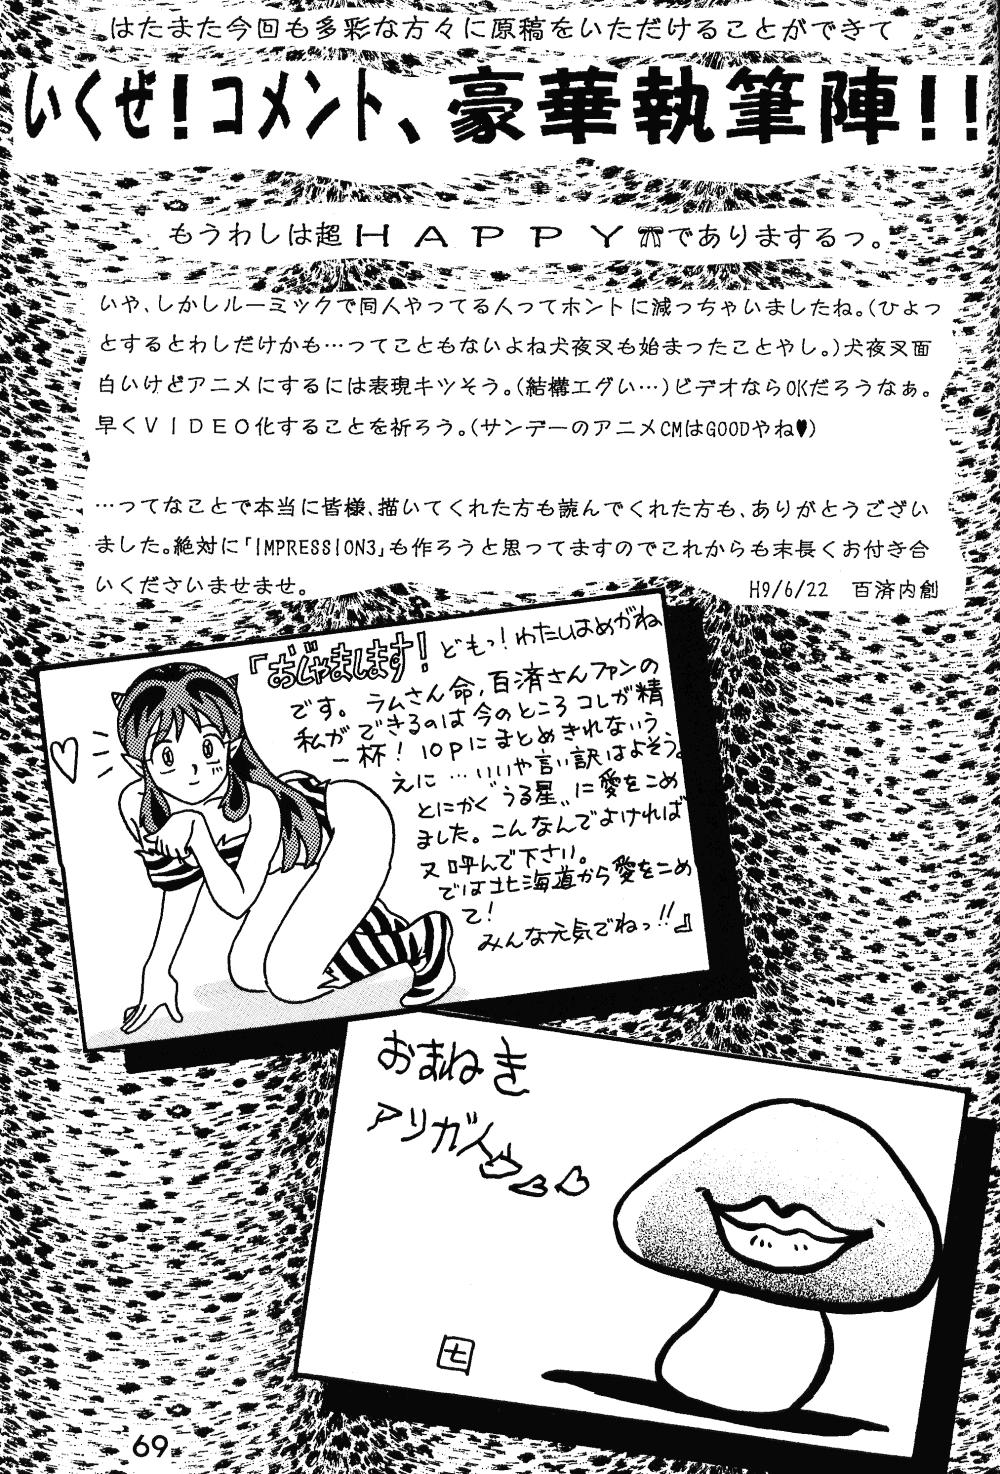 はたまた今回も多彩な方々に原稿をいただけることができて
いくぜ！コメント、豪華執筆陣！！
もうわしは超ＨＡＰＰＹでありまするっ。
いや、しかしルーミックで同人やってる人ってホントに減っちゃいましたね。（ひょっ
とするとわしだけかも…ってこともないよね犬夜叉も始まったことやし。）犬夜叉面
白いけどアニメにするには表現キツそう。（結構エグい…）ビデオならOKだろうなぁ。
早くＶＩＤＥＯ化することを祈ろう。（サンデーのアニメCMはGOODやね♥）
…ってなことで本当に皆様、描いてくれた方も読んでくれた方も、ありがとうござい
ました。絶対に「IMPRESSION3」も作ろうと思ってますのでこれからも末長くお付き合
いくださいませませ。
H9/6/22　百済内創
「おじゃまします！どもっ！わたしはめがね
です。ラムさん命、百済さんファンの
私ができるのは今のところコレが精
一杯！10Pにまとめきれないう
えに…いいや言い訳はよそう。
とにかく〝うる星〟に愛をこめ
ました。こんなんでよければ
又呼んで下さい。
では北海道から愛をこめ
て！
みんな元気でねっ!!』
おまねき
アリガト♡♡♡
七
69